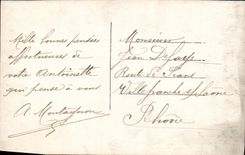 Mille bonnes pensées
affectueuses de
votre Antoinette
qui pense à vous
A. Montagnon
Monsieur
Jean
Route de
Villefranche s/ Saône
Rhône